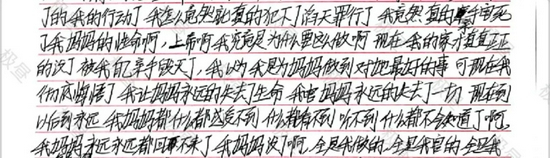 了的我的行动了 我怎么竟然就真的犯下了滔天罪行了 我竟然真的害死
了我妈妈的性命啊,上帝啊我究竟是为什么要这么做啊 现在我的家才真真正正
的没了 被我自己亲手毁灭了,我以为我是为妈妈做到对她最好的事 可现在我
彻底后悔了 我让妈妈永远的失去了生命 我害妈妈永远的失去了一切 现在到
以后到永远 我妈妈都什么都感受不到 什么都看不到 听不到 什么都不会知道了啊。
我妈妈永远永远都回不来了 我妈妈没了啊。全是我做的,全是我害的 全是我